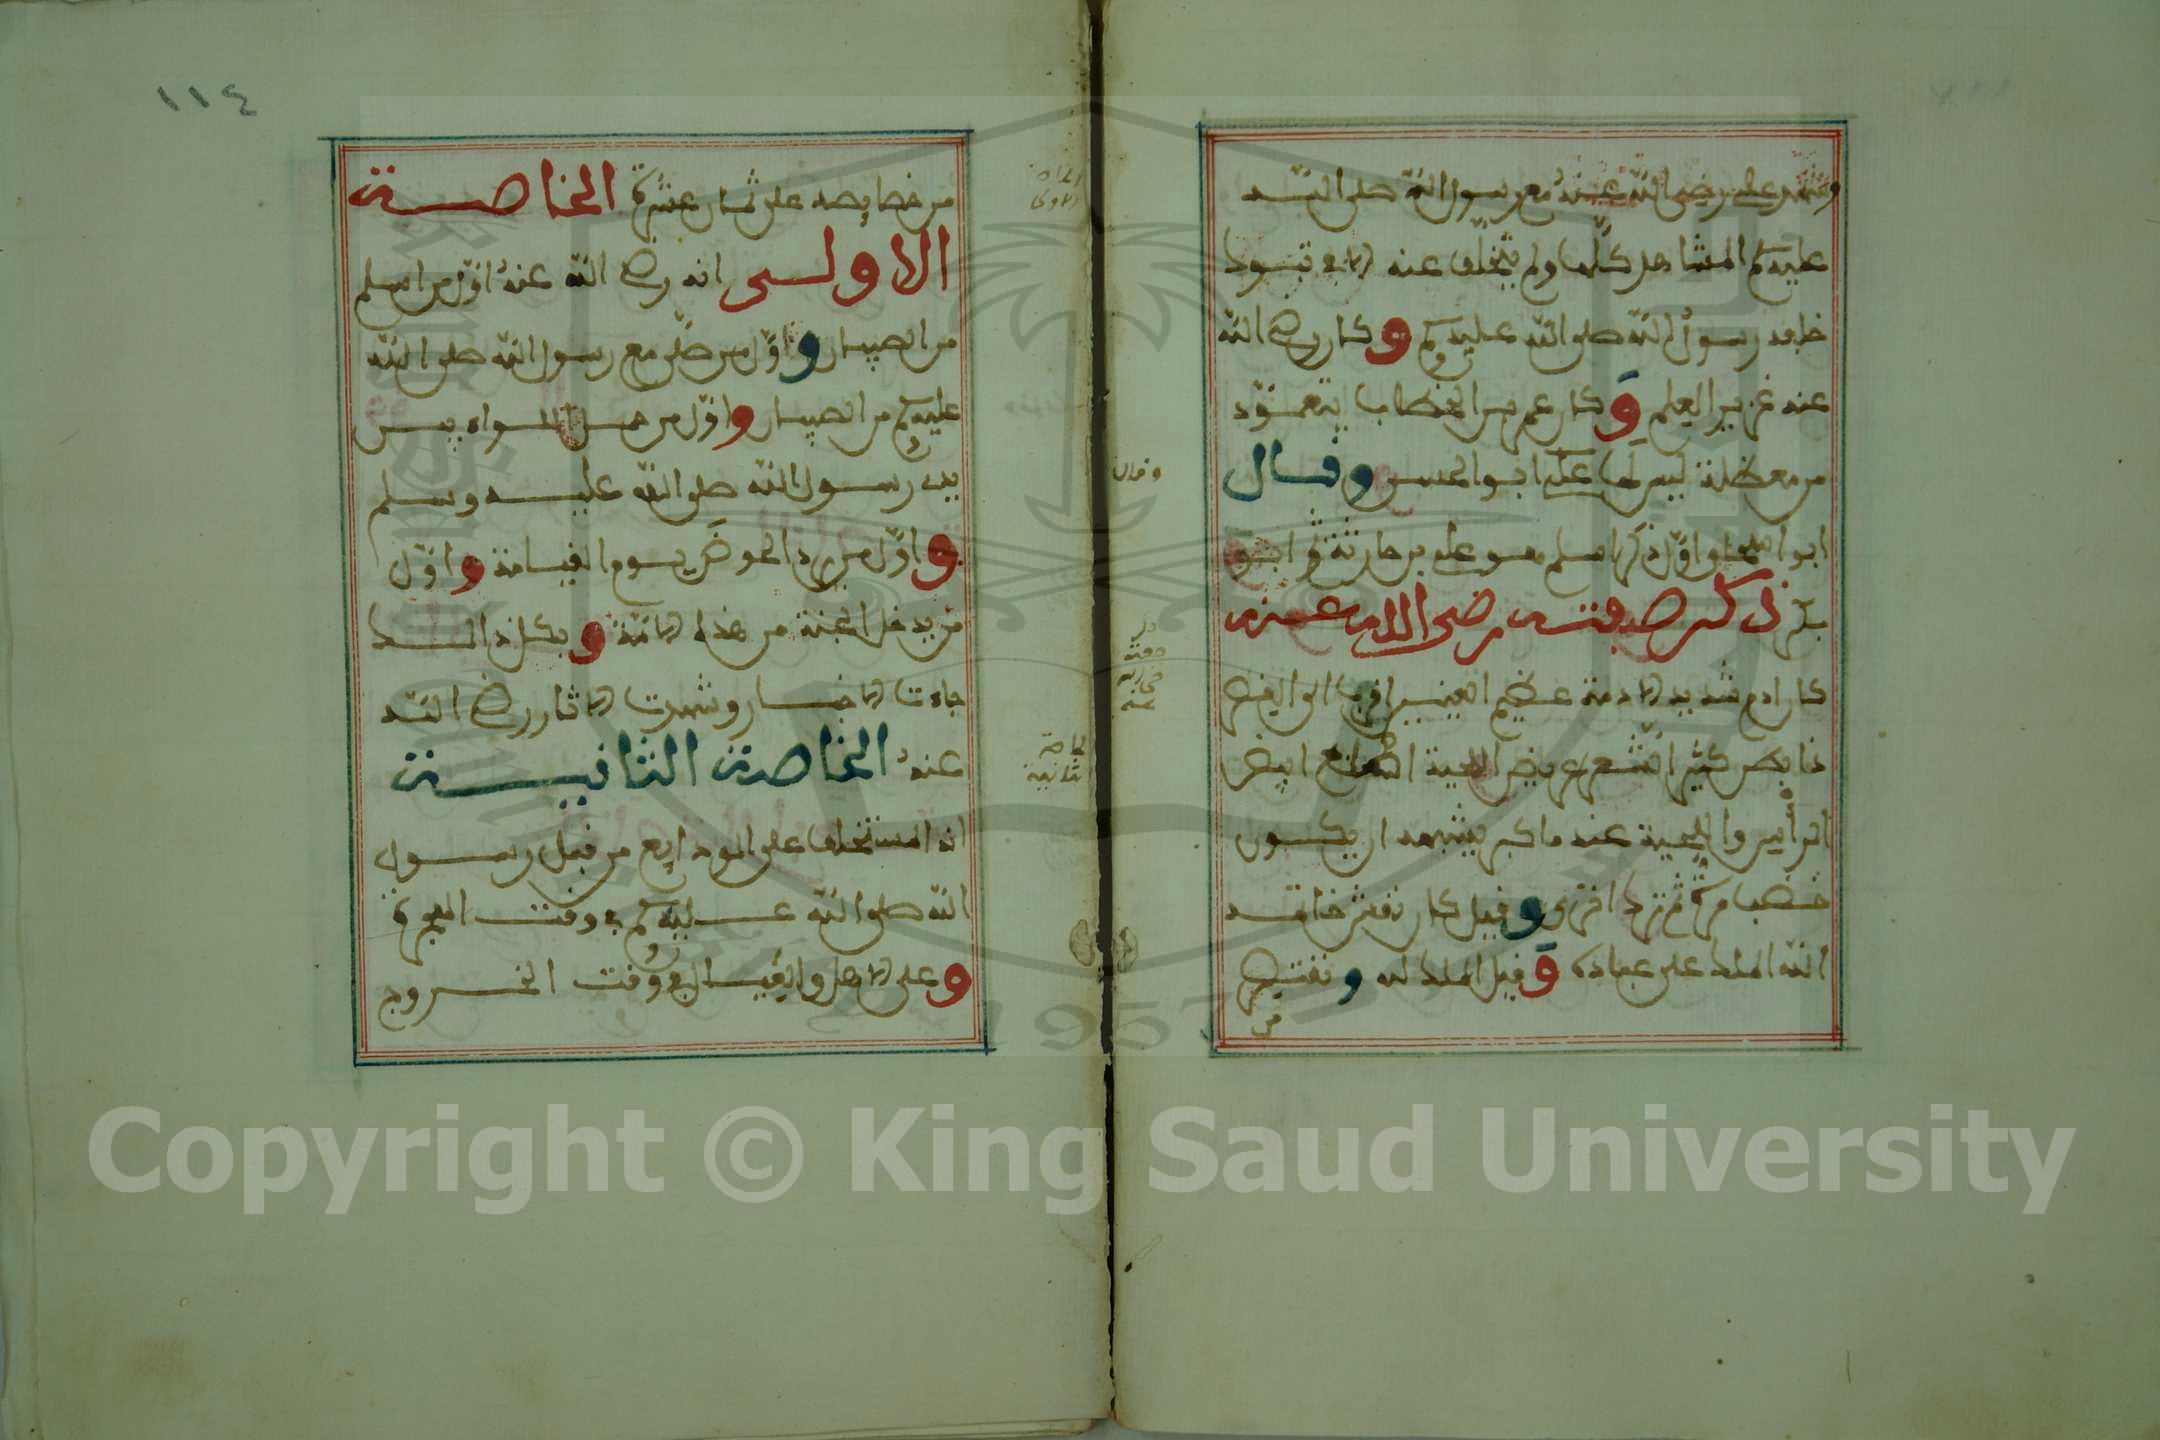 وشهد علي رضي الله عنه مع رسول الله صلى الله
عليه وسلم المشاهد كلها ولم يتخلف عنه الا في تبوك
خلفه رسول الله صلى الله عليه وسلم وكان رضي الله
عنه غزير العلم وكان عمر بن الخطاب يتعوذ
من معضلة ليس لها ابو الحسن وقال
ابو اول ذكر اسلم علي بن حارثة ثم ابو
بكر ذكر صفته رضي الله عنه
كان ادم شديد الادمة عظيم العينين اقرب الى القصر
ذا بطن كثير الشعر عريض اللحية اصلع ابيض
الراس واللحية
خضب مرة ثم ترك وقيل كان نقش خاتمه
الله الملك على عباده وقيل الملك لله ونقتصر
من
وقال
ذكر
صفته
رضي الله
عنه
١١٤
من خصايصه على ثمان عشرة الخاصة
الاولى انه رضي الله عنه اول من اسلم
من الصبيان واول من صلى مع رسول الله صلى الله
عليه وسلم من الصبيان واول من حمل اللواء بين
يدي رسول الله صلى الله عليه وسلم
واول من يرد الحوض يوم القيامة واول
من يدخل الجنة من هذه الامة وبكل ذلك
جاءت الاخبار وشهرت الاثار رضي الله
عنه الخاصة الثانية
انه المستخلف على الودايع من قبل رسول
الله صلى الله عليه وسلم في وقت الهجرة
وعلى الاهل والعيال في وقت الخروج
الخاصة
الاولى
الخاصة
الثانية
Copyright © King Saud University
1957